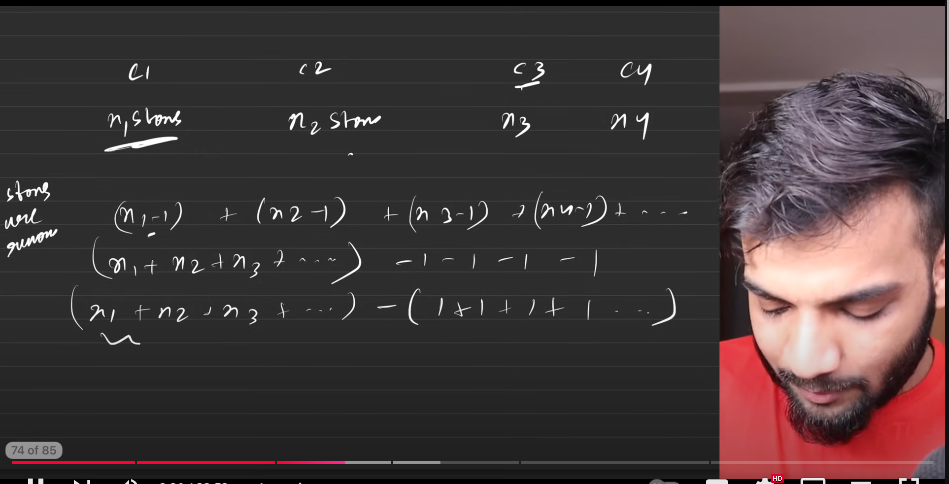 C1 C2 C3 C4
n1 stons n2 stons n3 n4
stons
(n1-1) + (n2-1) + (n3-1) + (n4-1) + ....
(n1 + n2 + n3 + ....) - 1 - 1 - 1 - 1
(n1 + n2 + n3 + ...) - (1 + 1 + 1 + 1 ...)
74 of 85
HD